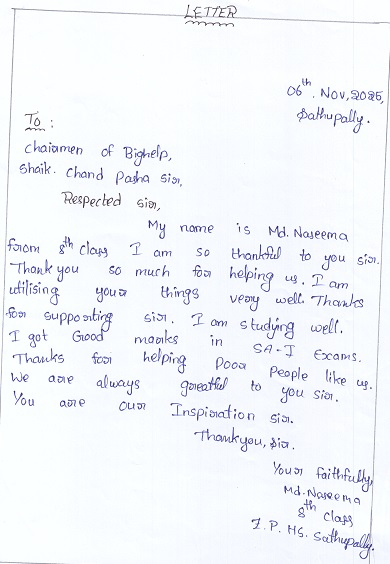 LETTER
06th. Nov, 2025,
Sathupally.
To :
Chairmen of Bighelp,
Shaik. Chand Pasha sir,
Respected sir,
My name is Md. Naseema
from 8th class I am so thankful to you sir.
Thank you so much for helping us. I am
utilising your things very well. Thanks
for supporting sir. I am studying well.
I got Good marks in SA-I Exams.
Thanks for helping poor People like us.
We are always greatful to you sir.
You are our Inspiration sir.
Thankyou, sir.
Your faithfully,
Md. Naseema
8th class
Z. P. HS. Sathupally.